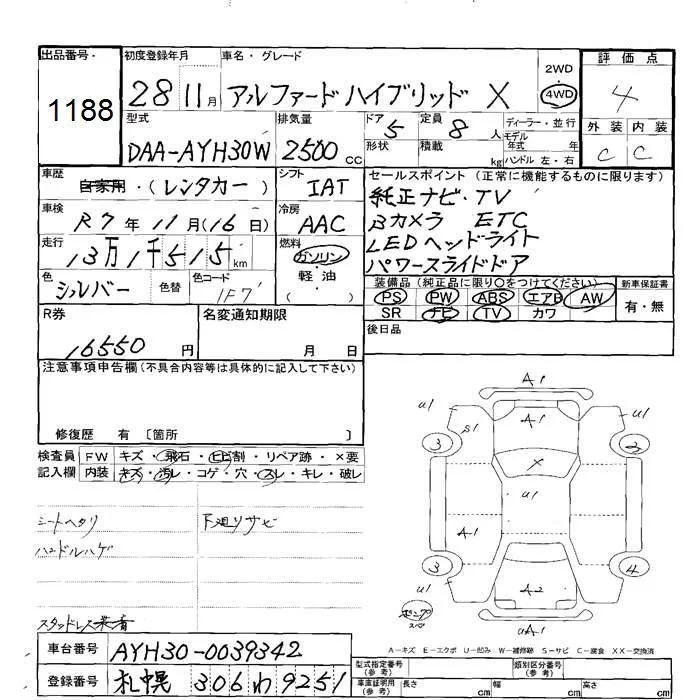 出品番号・
1188
初度登録年月
28 11月
車名・グレード
アルファードハイブリッド X
2WD
・
4WD
評価点
4
外装 内装
C C
型式
DAA-AYH30W
排気量
2500 CC
ドア
5
形状
定員
8 人
積載
kg
ディーラー・並行
モデル
年式 年
ハンドル 左・右
車歴
自家用・(レンタカー)
シフト
IAT
セールスポイント (正常に機能するものに限ります)
純正ナビ・TV
Bカメラ ETC
LEDヘッドライト
パワースライドドア
車検
R7年11月(16日)
冷房
AAC
走行
13万1千515km
燃料
ガソリン
・
軽油
・
( )
色
シルバー
色替
色コード
1F7
装備品 (純正品に限り○をつけてください)
PS PW ABS エアB AW
SR ナビ TV カワ
新車保証書
有・無
R券
16550 円
名変通知期限
月 日
後日品
注意事項申告欄(不具合内容等は具体的に記入して下さい)
修復歴 有 〔箇所 〕
検査員 FW キズ・飛石・ヒビ割・リペア跡・×要
記入欄 内装 キズ・汚レ・コゲ・穴・スレ・キレ・破レ
シートヘタリ 下廻りサビ
ハンドルハゲ
スタッドレス装着
A1
U1 U1
S1 A1
3 2
X
U1
A1
3 4
A2
U1 U1
UA1
A-キズ E-エクボ U-凹み W-補修跡 S-サビ C-腐食 XX-交換済
車台番号 AYH30-0039342
登録番号 札幌 306 わ 9251
型式指定番号
(参考)
類別区分番号
(参考)
車庫証明用
(参考)
長さ cm 幅 cm 高さ cm